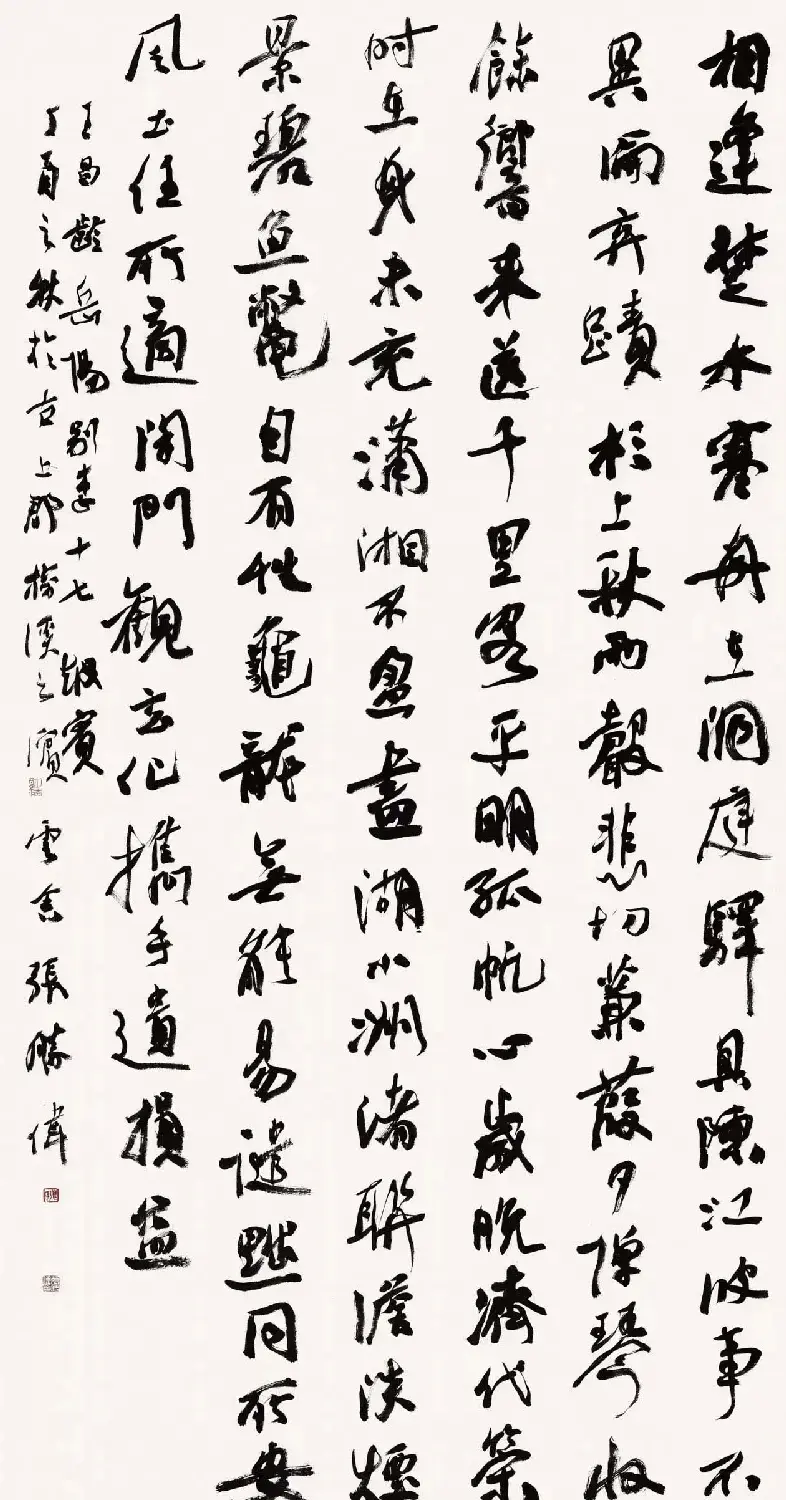 相逢楚水寒舟在洞庭驛具陳江波事不
異淪弃蹟杉上秋雨聲悲切蒹葭夕彈琴收
餘響来送千里客平明孤帆心歲晚濟代策
时在身未充瀟湘不盈畫湖小洲渚聯澹淡煙
景碧魚鼈自有性龜龍無能易譴黜同所安
風土任所適閉門觀玄化攜手遺損益
王昌齡岳陽别李十七越賓
丁酉之秋於古上郡榆溪之濱 雲張勝偉